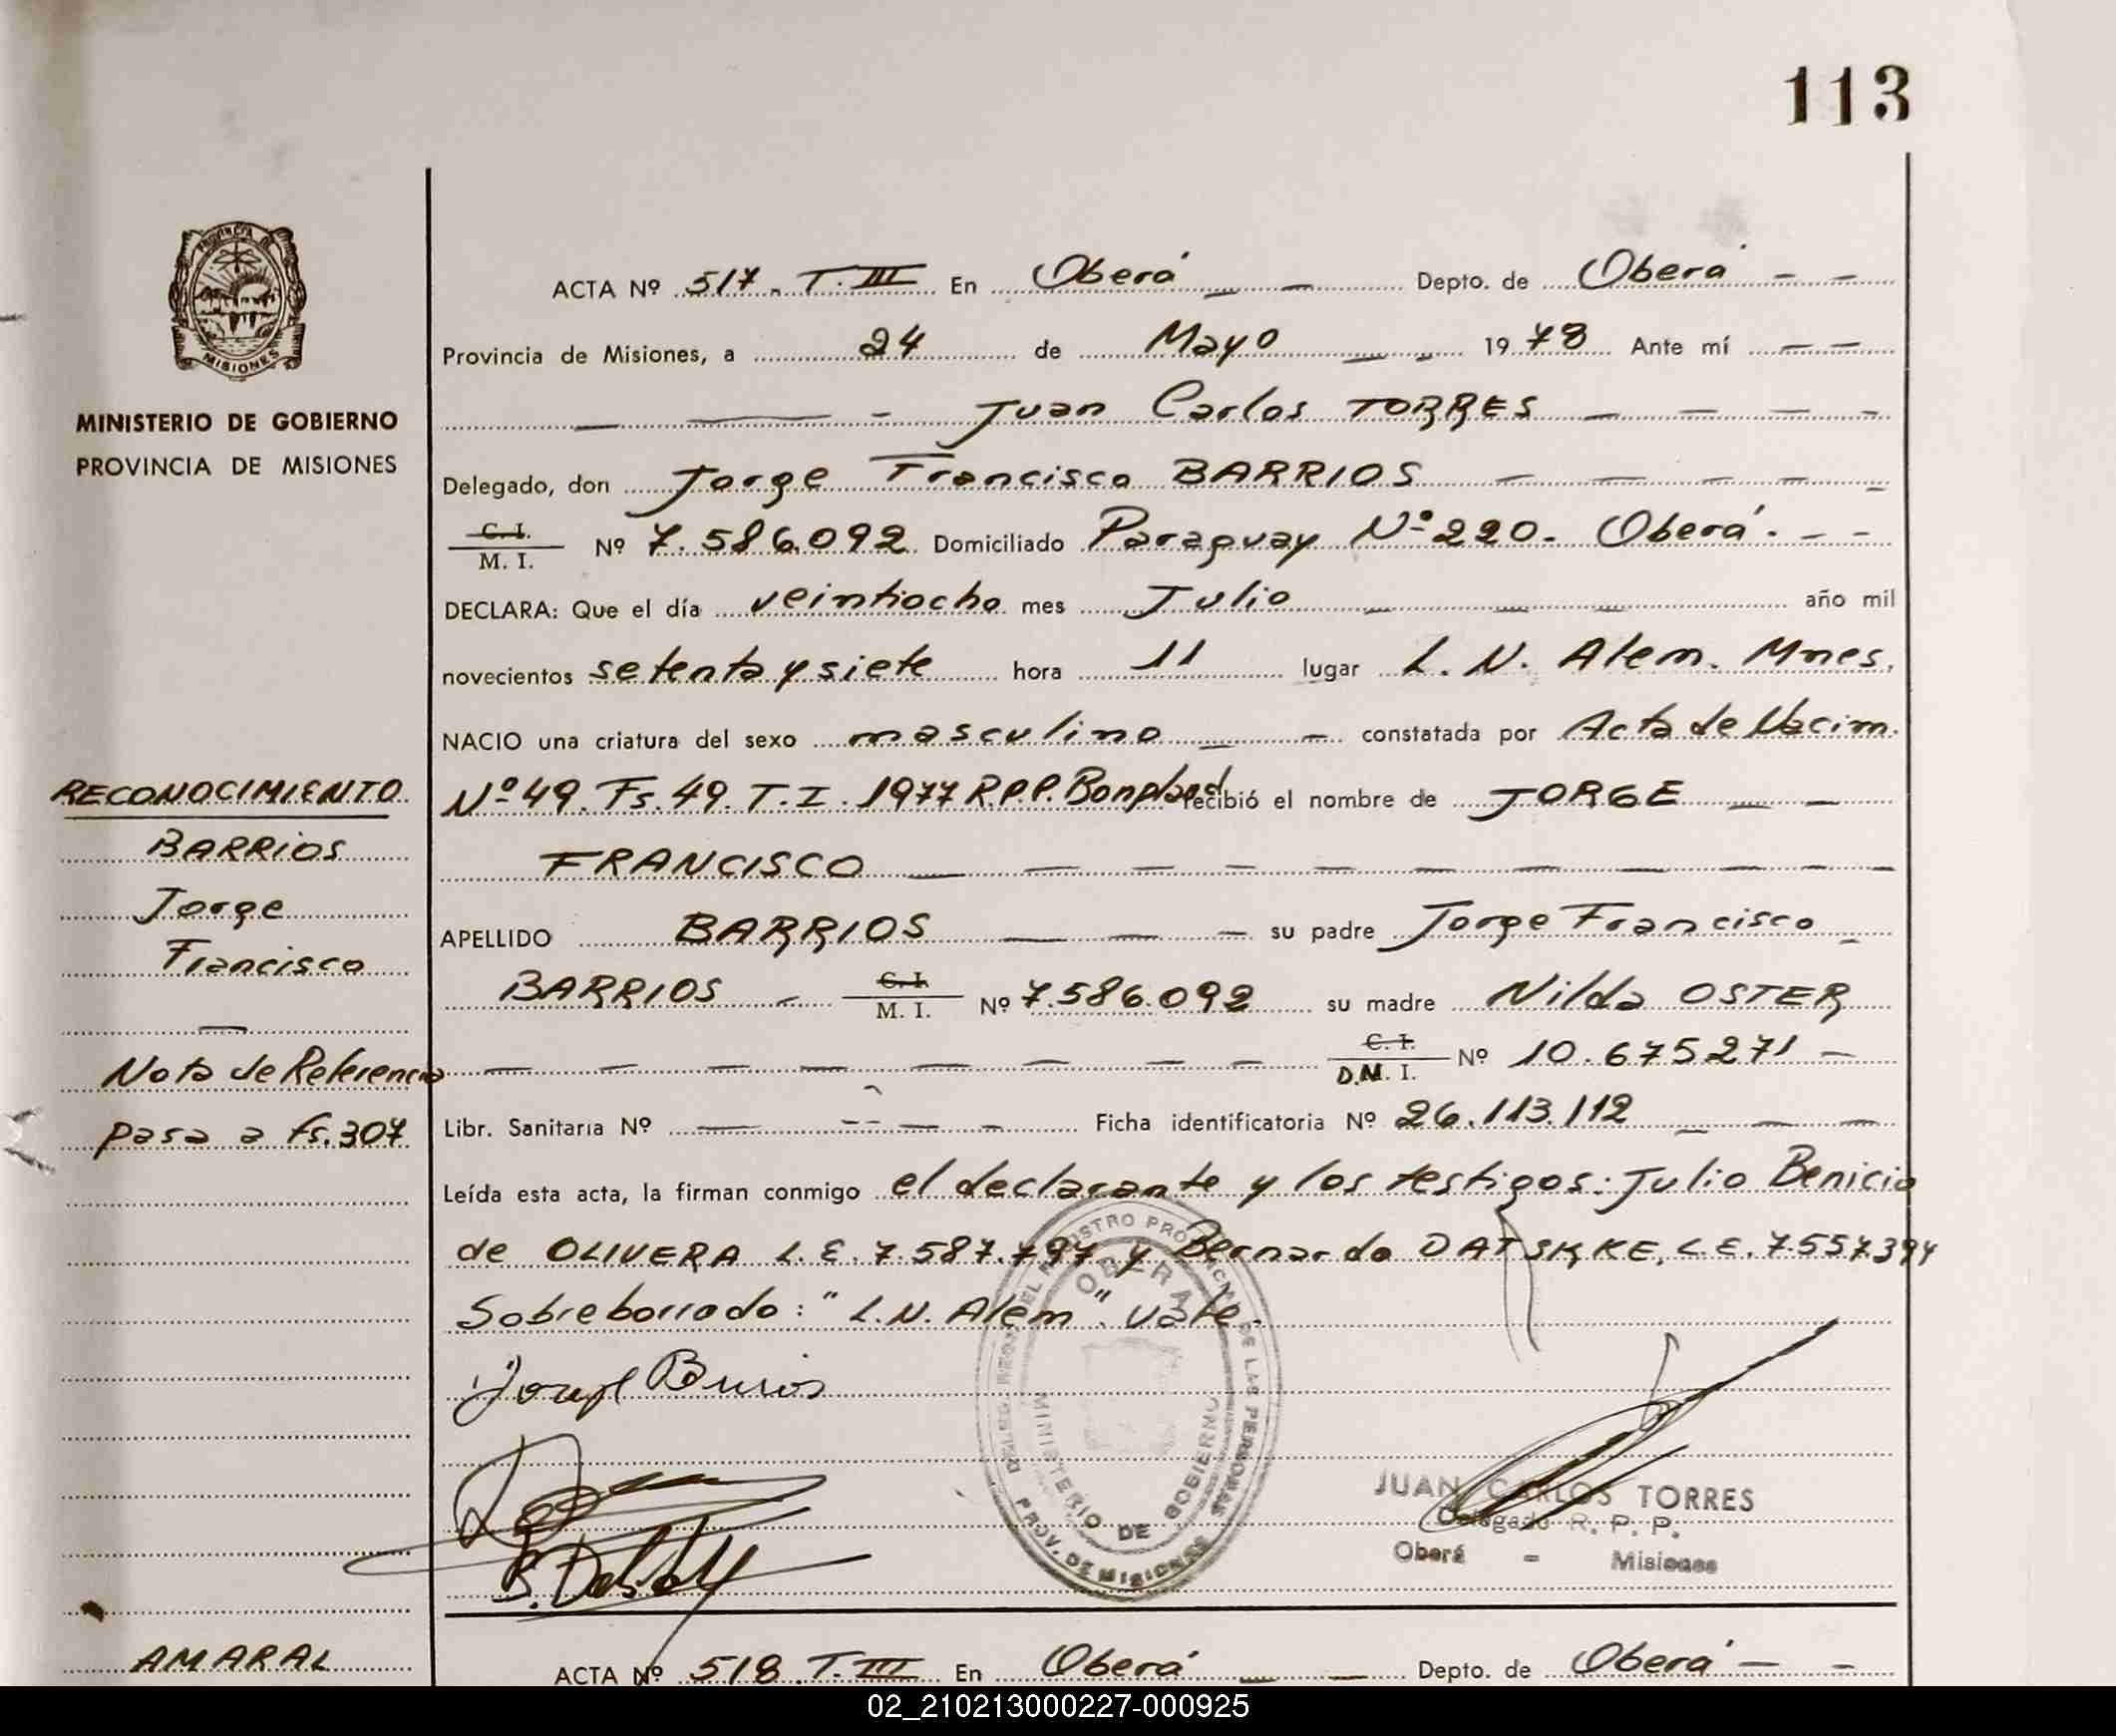 113
PROVINCIA DE
MISIONES
MINISTERIO DE GOBIERNO
PROVINCIA DE MISIONES
RECONOCIMIENTO
BARRIOS
Jorge
Francisco
—
Nota de Referencia
pasa a fs. 307
ACTA Nº 517. T. III En Oberá — — Depto. de Oberá — —
Provincia de Misiones, a 24 de Mayo — - 1978 Ante mí — —
— — - Juan Carlos TORRES — — — -
Delegado, don Jorge Francisco BARRIOS — — — — —
C. I.
M. I. Nº 7.586.092 Domiciliado Paraguay Nº 220. Oberá. - -
DECLARA: Que el día veintiocho mes Julio — — — año mil
novecientos setenta y siete hora 11 lugar L. N. Alem. Mnes.
NACIO una criatura del sexo masculino — — constatada por Acta de Nacim.
Nº 49. Fs. 49. T. I. 1977 R.P.P. Bonpland recibió el nombre de JORGE — —
FRANCISCO — — — — — — — — — —
APELLIDO BARRIOS — — — su padre Jorge Francisco -
BARRIOS - C. I.
M. I. Nº 7.586.092 su madre Nilda OSTER
— — — — — — — — C. I.
D.M. I. Nº 10.675271 —
Libr. Sanitaria Nº — -- — - Ficha identificatoria Nº 26.113.112 — — —
Leída esta acta, la firman conmigo el declarante y los testigos: Julio Benicio
de OLIVERA L.E. 7.587.797 y Bernardo DATSKKE, L.E. 7.557.394
Sobreborrado: "L.N. Alem". Vale.
Jorge Barrios
DEL REGISTRO PROVINCIAL DE LAS PERSONAS
OBERA
MINISTERIO DE GOBIERNO
PROV. DE MISIONES
JUAN CARLOS TORRES
Delegado R. P. P.
Oberá - Misiones
AMARAL
ACTA Nº 518 T. III En Oberá — — Depto. de Oberá — -
02_210213000227-000925